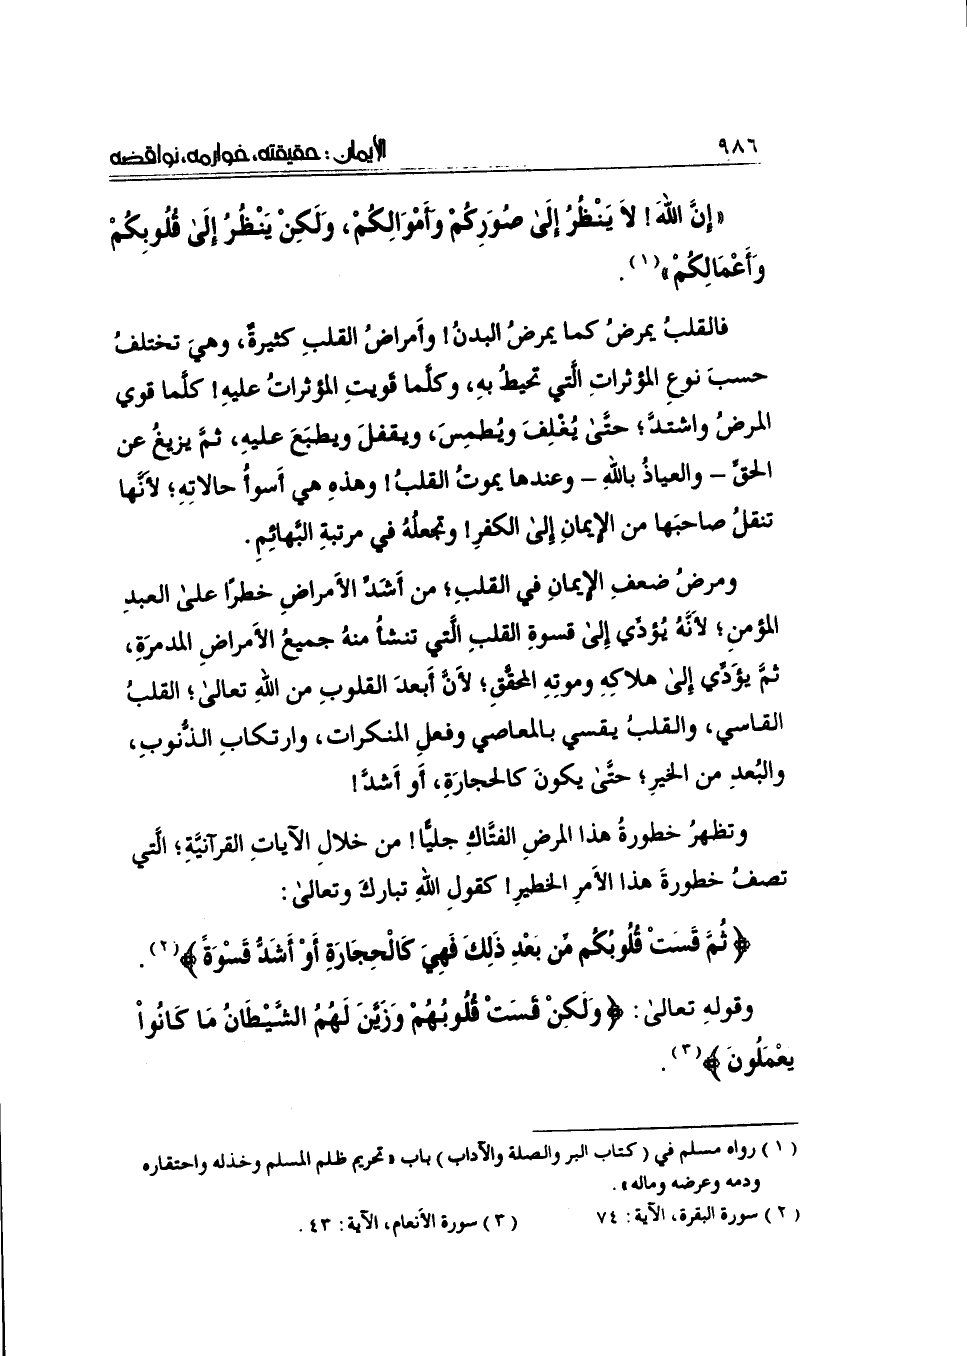 ٩٨٦
الإيمان: حقيقته، خوارمه، نواقضه
«إِنَّ اللهَ! لاَ يَنْظُرُ إِلَىٰ صُوَرِكُمْ وَأَمْوَالِكُمْ، وَلَكِنْ يَنْظُرُ إِلَىٰ قُلُوبِكُمْ
وَأَعْمَالِكُمْ»(١).
فالقلبُ يمرضُ كما يمرضُ البدنُ! وأمراضُ القلبِ كثيرةٌ، وهيَ تختلفُ
حسبَ نوعِ المؤثراتِ الَّتي تحيطُ بهِ، وكلَّما قويتِ المؤثراتُ عليهِ! كلَّما قوي
المرضُ واشتدَّ؛ حتَّىٰ يُغْلِفَ ويُطمِسَ، ويقفلَ ويطبَعَ عليهِ، ثمَّ يزيغُ عن
الحقِّ – والعياذُ باللهِ – وعندها يموتُ القلبُ! وهذهِ هي أسوأُ حالاتِهِ؛ لأنَّها
تنقلُ صاحبَها من الإيمانِ إلىٰ الكفرِ! وتجعلُهُ في مرتبةِ البَهائِمِ.
ومرضُ ضعفِ الإيمانِ في القلبِ؛ من أشدِّ الأمراضِ خطرًا علىٰ العبدِ
المؤمنِ؛ لأنَّهُ يُؤدِّي إلىٰ قسوةِ القلبِ الَّتي تنشأُ منهُ جميعُ الأمراضِ المدمرَةِ،
ثمَّ يؤَدِّي إلىٰ هلاكِهِ وموتِهِ المحقَّقِ؛ لأنَّ أبعدَ القلوبِ من اللهِ تعالىٰ؛ القلبُ
القاسي، والقلبُ يقسي بالمعاصي وفعلِ المنكرات، وارتكابِ الذُّنوبِ،
والبُعدِ من الخيرِ؛ حتَّىٰ يكونَ كالحجارَةِ، أو أشدَّ!
وتظهرُ خطورةُ هذا المرضِ الفتَّاكِ جليًّا! من خلالِ الآياتِ القرآنيَّةِ؛ الَّتي
تصفُ خطورةَ هذا الأمرِ الخطيرِ! كقولِ اللهِ تباركَ وتعالىٰ:
﴿ثُمَّ قَسَتْ قُلُوبُكُم مِّن بَعْدِ ذَلِكَ فَهِيَ كَالْحِجَارَةِ أَوْ أَشَدُّ قَسْوَةً﴾(٢).
وقولهِ تعالىٰ: ﴿وَلَكِنْ قَسَتْ قُلُوبُهُمْ وَزَيَّنَ لَهُمُ الشَّيْطَانُ مَا كَانُواْ
يعْمَلُونَ﴾(٣).
(١) رواه مسلم في (كتاب البر والصلة والآداب) باب «تحريم ظلم المسلم وخذله واحتقاره
ودمه وعرضه وماله».
(٢) سورة البقرة، الآية: ٧٤ (٣) سورة الأنعام، الآية: ٤٣.